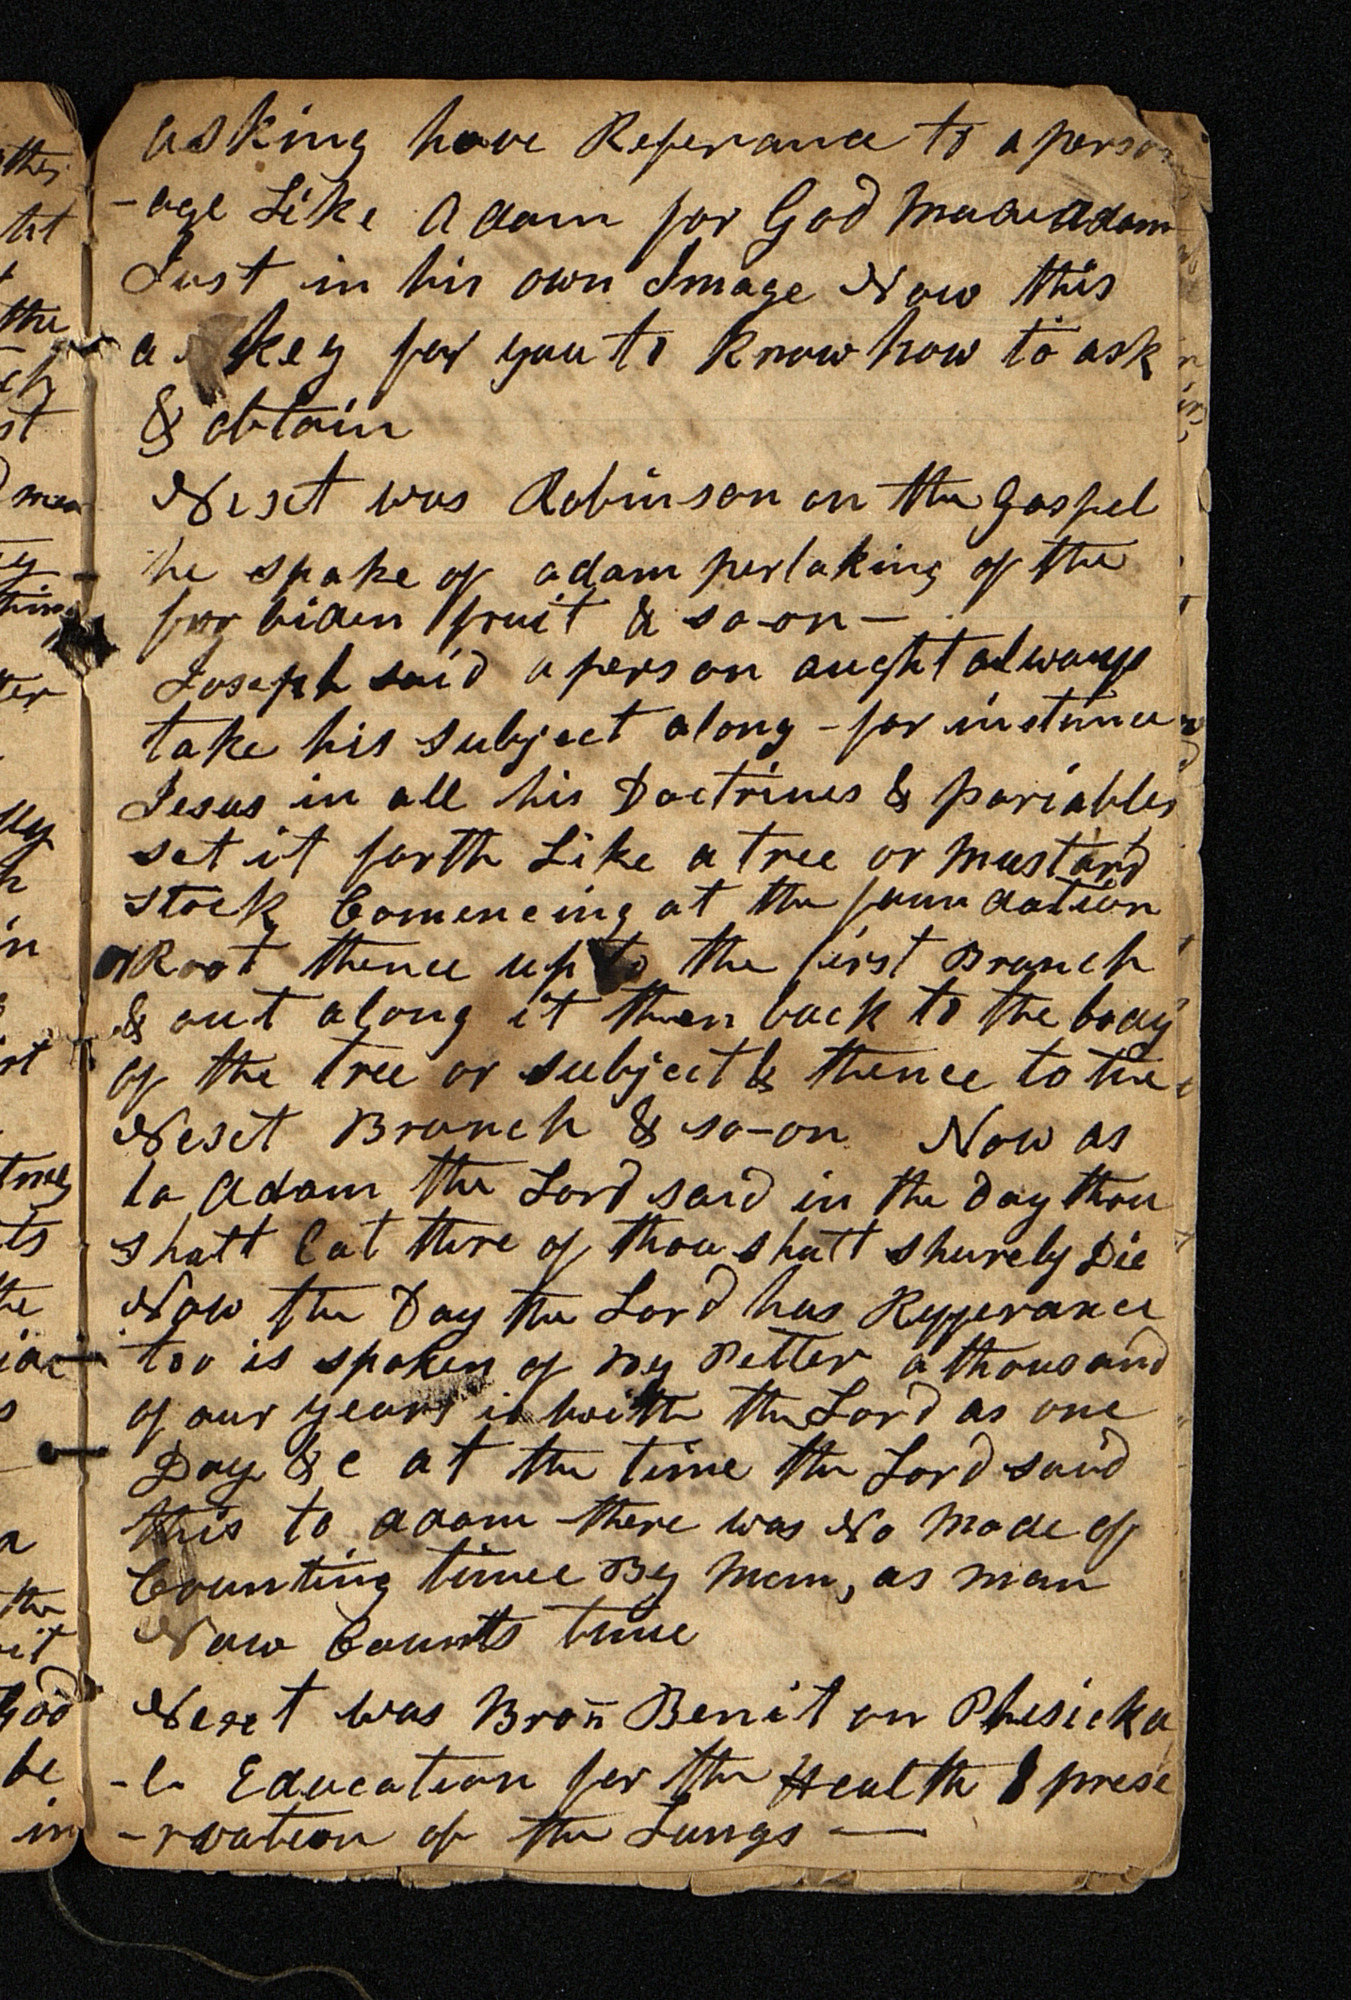 asking have Referance to a person
-age Like Adam for God made Adam
Just in his own Image Now this
a key for you to know how to ask
& obtain
Next was Robinson on the Gospel
he spake of adam pertaking of the
forbiden fruit & so-on —
Joseph said a person aught always
take his subject along - for instance
Jesus in all his Doctrines & pariables
set it forth Like a tree or mustard
stock Comencing at the foundation
or Root thence up to the first Branch
& out along it then back to the body
of the tree or subject & thence to the
Next Branch & so-on Now as
to Adam the Lord said in the Day thou
shalt Eat there of thou shalt shurely Die
Now the Day the Lord has Refferance
too is spoken of By Petter a thousand
of our years is with the Lord as one
Day &c at the time the Lord said
this to adam there was No mode of
Counting time By Man, as man
Now Counts time
Next was Bron Benit on Phisicka
-l Education for the Health & prese
-rvation of the Lungs —